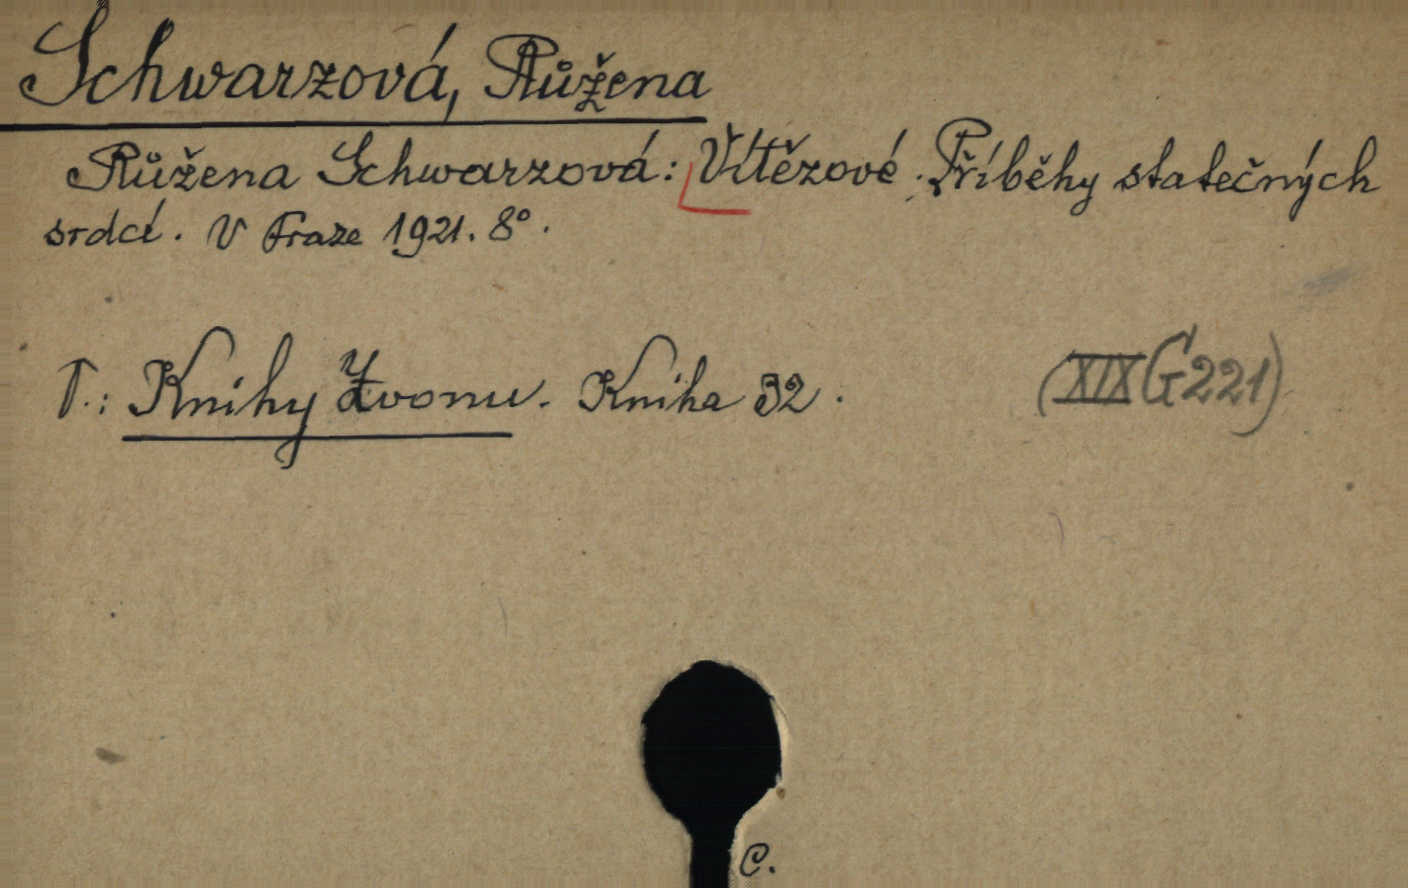 Schwarzová, Růžena
Růžena Schwarzová: Vítězové. Příběhy statečných
srdcí. V Praze 1921. 8°.
V.: Knihy Zvonu. Kniha 32. (XIX G 221)
C.